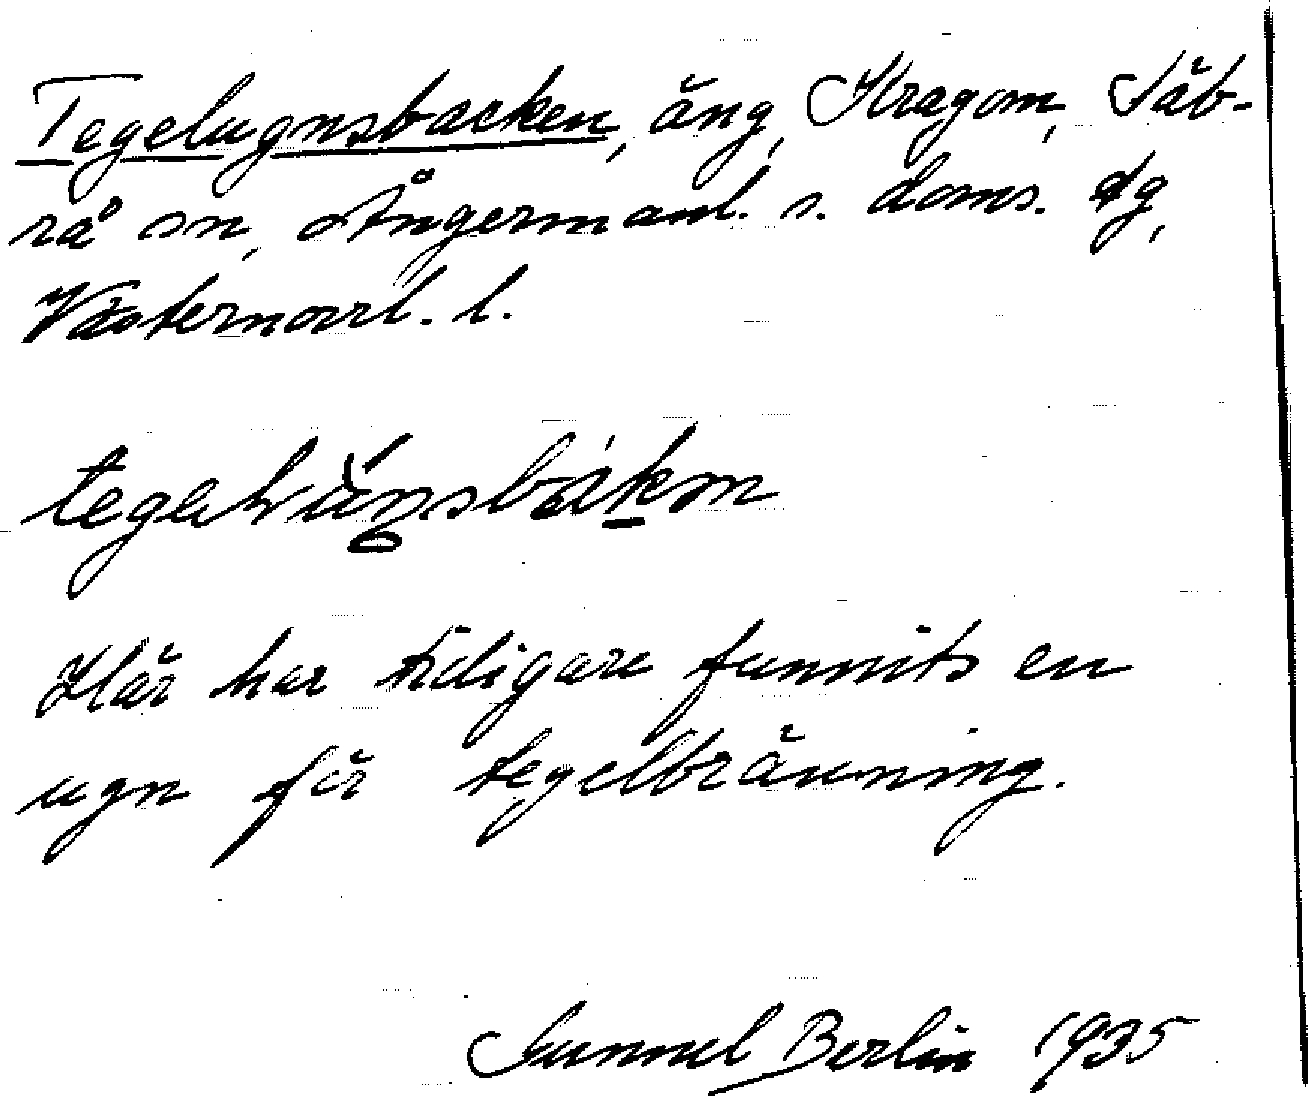 Tegelugnsbacken, äng, Kragom, Säb-
rå sn, Ångermanl. s. doms. dg,
Västernorrl. l.
Här har tidigare funnits en
ugn för tegelbränning.
Gunnel Berlin 1935